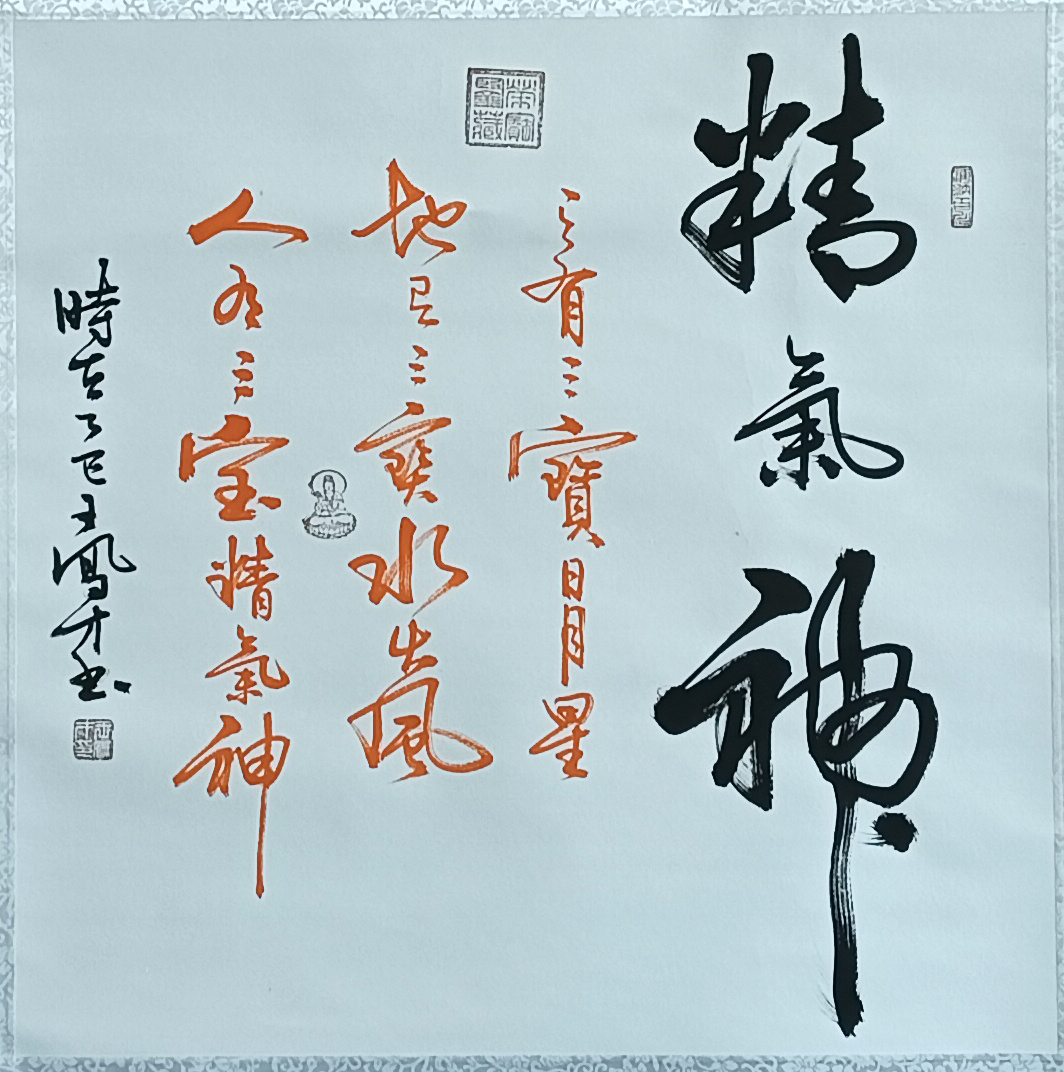 精氣神
天有三寶日月星
地有三寶水火風
人有三宝精氣神
時在乙巳王鳳才書